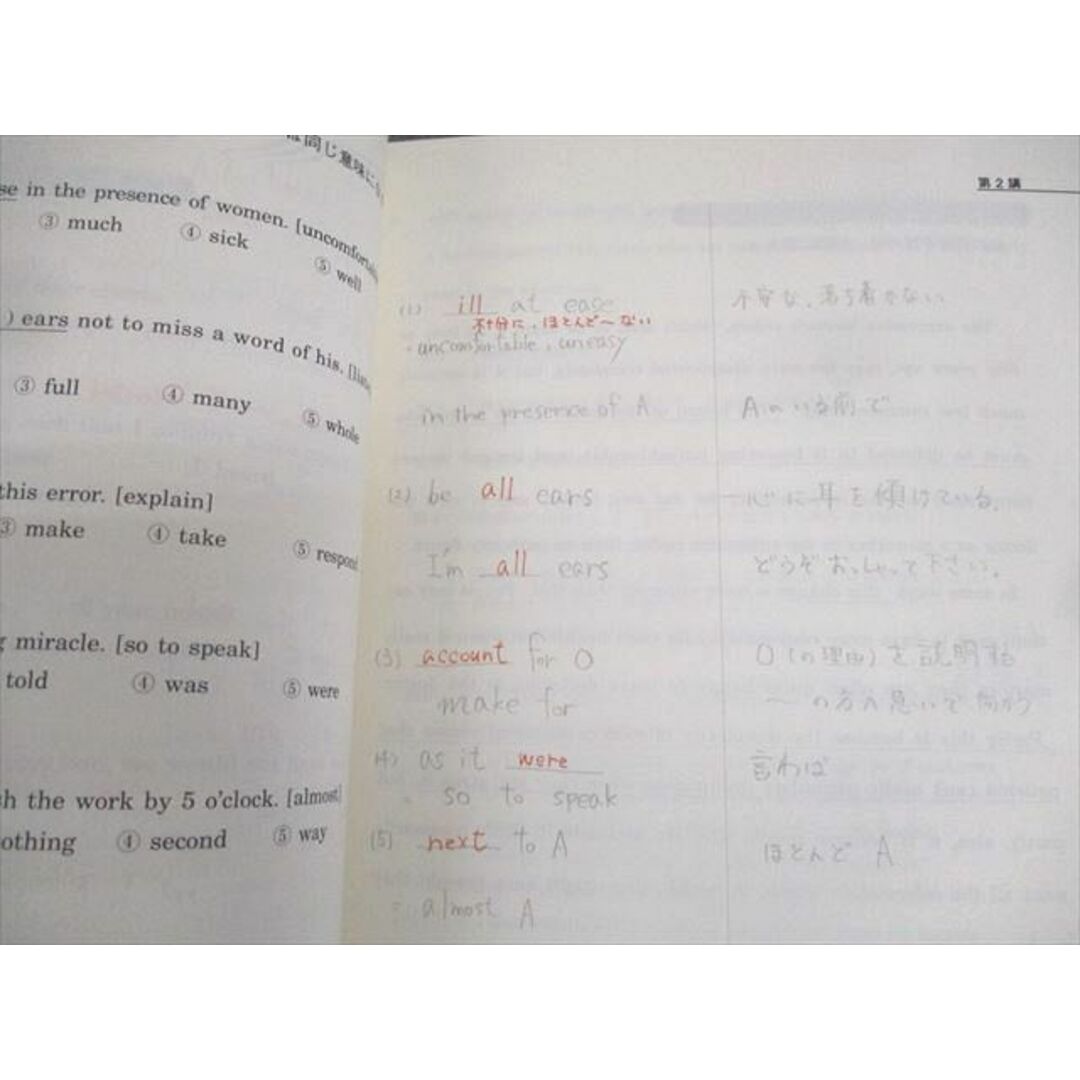 は同じ意味に
se in the presence of women. [uncomfortable
③ much ④ sick ⑤ well
) ears not to miss a word of his. [liste
③ full ④ many ⑤ whole
this error. [explain]
③ make ④ take ⑤ respond
g miracle. [so to speak]
told ④ was ⑤ were
sh the work by 5 o'clock. [almost]
othing ④ second ⑤ way
第2講
(1) ill at ease 不安な、落ち着かない
不十分に、ほとんど〜ない
・uncomfortable, uneasy
in the presence of A Aのいる前で
(2) be all ears 一心に耳を傾けている。
I'm all ears どうぞおっしゃって下さい。
(3) account for O O(の理由)を説明する
make for 〜の方へ急いで向かう
(4) as it were 言わば
so to speak
(5) next to A ほとんど A
= almost A